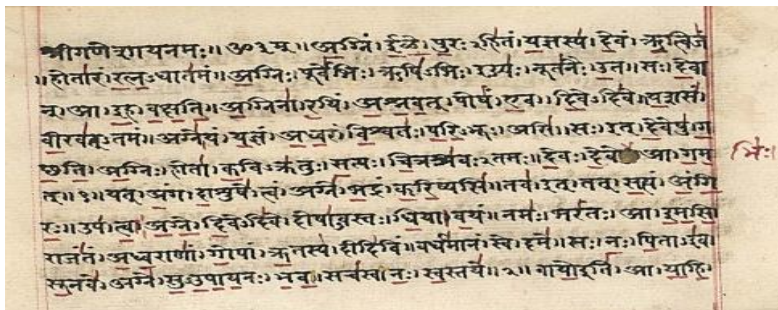 श्रीगणेशायनमः॥ ॐ३म्॥ अग्निं। ईळे। पुरःऽहितं। यज्ञस्य। देवं। ऋत्विजं
॥होतारं। रत्नऽधातमं॥ अग्निः। पूर्वेभिः। ऋषिऽभिः। ईड्यः। नूतनैः। उत॥ सः। देवा
न्। आ। इह। वक्षति॥ अग्निना। रयिं। अश्नवत्। पोषं। एव। दिवेऽदिवे॥ यशसं
वीरवत्ऽतमं॥ अग्ने। यं। यज्ञं। अध्वरं। विश्वतः। परिऽभूः। असि॥ सः। इत्। देवेषु। ग
च्छति॥ अग्निः। होता। कविऽक्रतुः। सत्यः। चित्रश्रवःऽतमः॥ देवः। देवे आ। गम भिः।
त्॥१॥ यत्। अंग। दाशुषे। त्वं। अग्ने। भद्रं। करिष्यसि॥ तव। इत्। तत्। सत्यं। अंगि
रः॥ उप। त्वा। अग्ने। दिवेऽदिवे। दोषाऽवस्तः। धिया। वयं॥ नमः। भरंतः। आ। इमसि
राजंतं। अध्वराणां। गोपां। ऋतस्य। दीदिविं॥ वर्धमानं। स्वे। दमे॥ सः। नः। पिताऽइव
सूनवे। अग्ने। सुऽउपायनः। भव॥ सचस्व। नः। स्वस्तये॥२॥ वायोइति। आ। याहि।